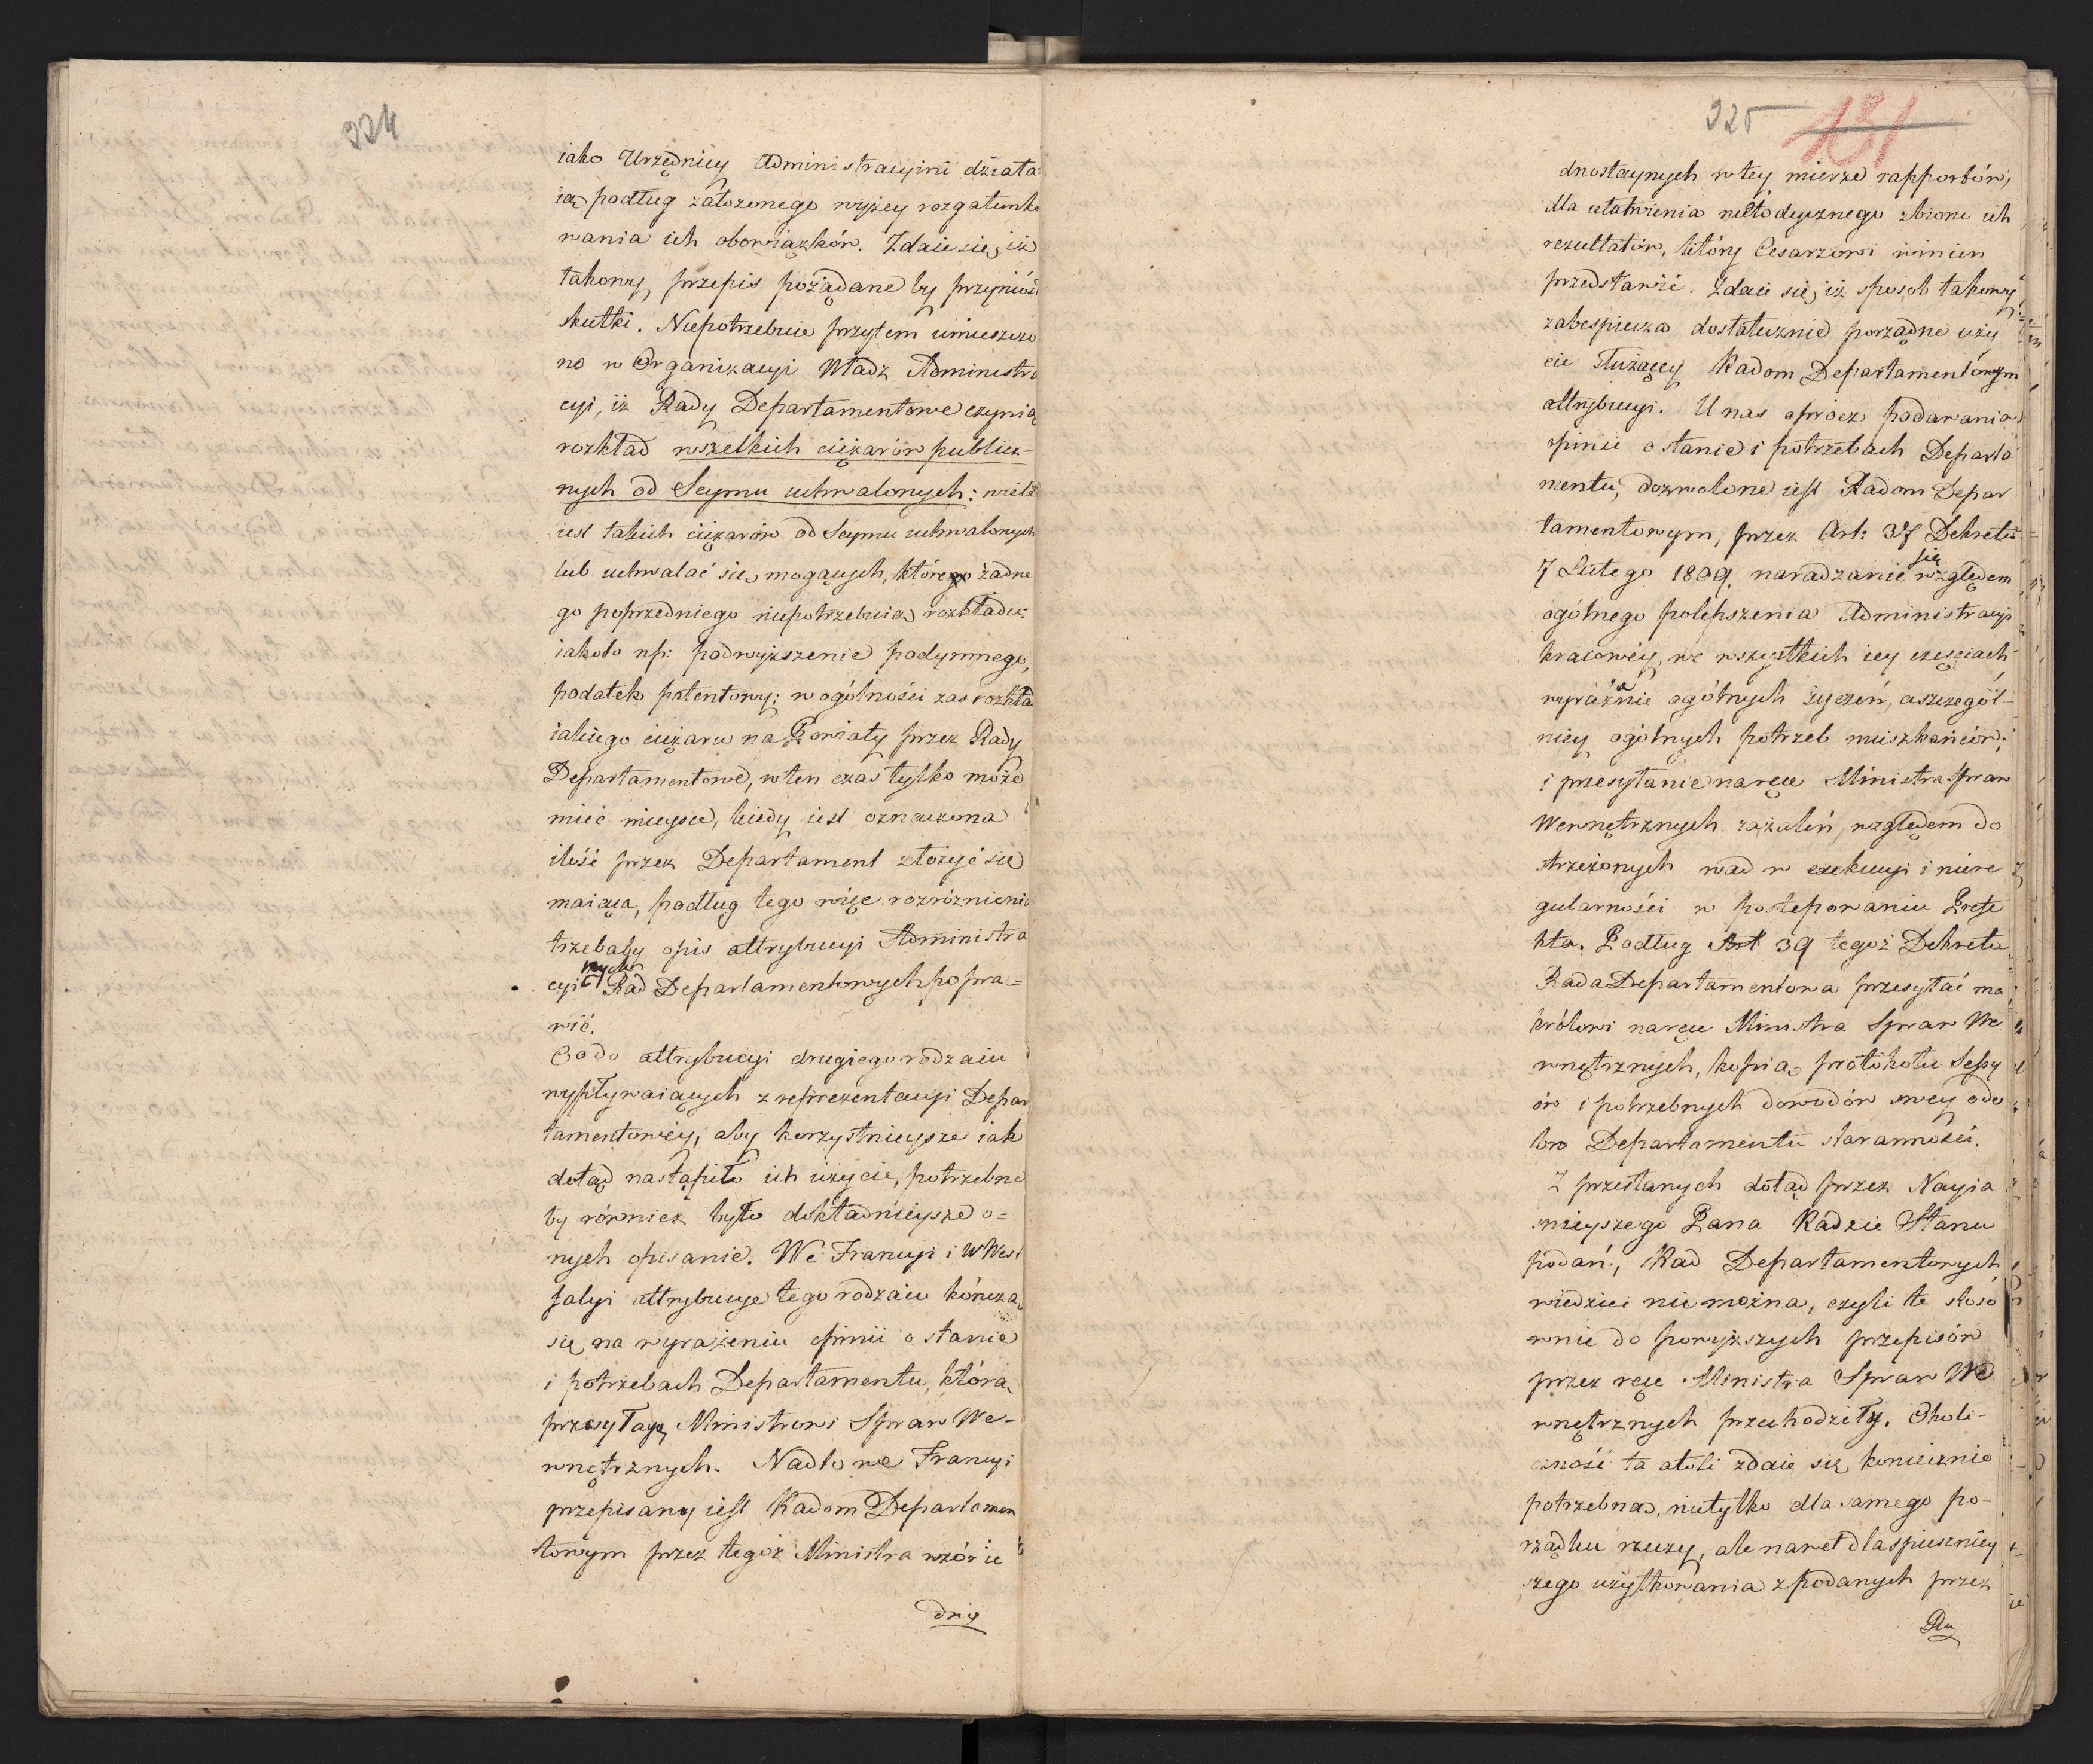 324
iako Urzędnicy Administracyini działa=
ią podług założonego wyżey rozgatunko
wania ich obowiązków. Zdaie się, iż
takowy przepis pożądane by przyniósł
skutki. Niepotrzebnie przytem umieszczo
no w Organizacyi Władz Administra
cyi, iż Rady Departamentowe czynią
rozkład wszelkich ciężarów publicz-
nych od Seymu uchwalonych: wiele
iest takich ciężarów od Seymu uchwalonych
lub uchwalać się mogących, które żadne
go poprzedniego niepotrzebuią rozkładu:
iakoto np: podwyższenie podymnego,
podatek patentowy; w ogólności zaś rozkła
iakiego ciężaru na Powiaty przez Rady
Departamentowe, wten czas tylko może
mieć mieysce, kiedy iest oznaczona
ilość przez Departament złożyć się
maiąca, podług tego więc rozróżnienia
trzebaby opis attrybucyi Administra
cyinych Rad Departamentowych popra=
wić.
Co do attrybucyi drugiego rodzaiu
wypływaiących z reprezentacyi Depar
tamentowéy, aby korzystnieysze iak
dotąd nastąpiło ich użycie, potrzebne
by również było dokładnieysze o=
nych opisanie. We Francyi i w West
falyi attrybucye tego rodzaiu kończą
się na wyrażeniu opinii o stanie
i potrzebach Departamentu, którą
przesyłaią Ministrowi Spraw We-
wnętrznych. Nadto we Francyi
przepisany iest Radom Departamen
towym przez tegoż Ministra wzór ie
dno
325 181
dnostaynych w tey mierze rapportów,
dla ułatwienia metodycznego zbioru ich
rezultatów, który Cesarzowi winien
przedstawić. Zdaie się, iż sposob takowy
zabespiecza dostatecznie porządne uży
cie służącey Radom Departamentowym
attrybucyi. U nas oprócz podawania
opinii o stanie i potrzebach Departa
mentu, dozwolone iest Radom Depar
tamentowym, przez Art: 37 Dekretu
7 Lutego 1809. naradzanie się względem
ogólnego polepszenia Administracyi
kraiowéy, we wszystkich iey częściach
wyrażanie ogólnych życzeń, a szczegól-
niey ogólnych potrzeb mieszkańców;
i przesyłanie na ręce Ministra Spraw
Wewnętrznych zażaleń, względem do
strzeżonych wad w exekucyi i niere
gularności w postępowaniu Prefe
kta. Podług Art 39 tegoż Dekretu
Rada Departamentowa przesyłać ma
królowi na ręce Ministra Spraw We
wnętrznych, kopią protokołu Sessy
ów i potrzebnych dowodów swey o do
bro Departamentu staranności.
Z przesłanych dotąd przez Nayia
śnieyszego Pana Radzie Stanu
podań, Rad Departamentowych
wiedzieć nie można, czyli te stoso
wnie do powyższych przepisów
przez ręce Ministra Spraw We
wnętrznych przechodziły. Okoli-
czność ta atoli zdaie się koniecznie
potrzebna, nietylko dla samego po-
rządku rzeczy, ale nawet dla spieszniey
szego użytkowania z podanych przez
Ra